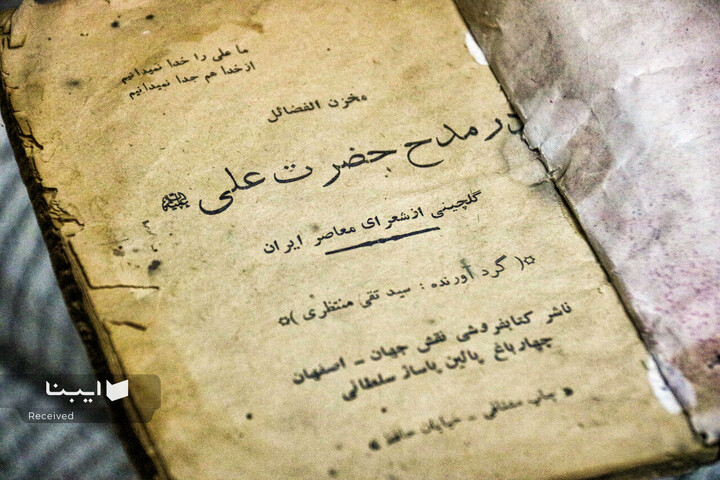 ما علی را خدا نمیدانیم
از خدا هم جدا نمیدانیم
مخزن الفضائل
در مدح حضرت علی
گلچینی از شعرای معاصر ایران
(گرد آورنده : سید تقی منتظری)
ناشر کتابفروشی نقش جهان - اصفهان
چهارباغ پائین پاساژ سلطانی
چاپ - خیابان حافظ
ایبنا
Received